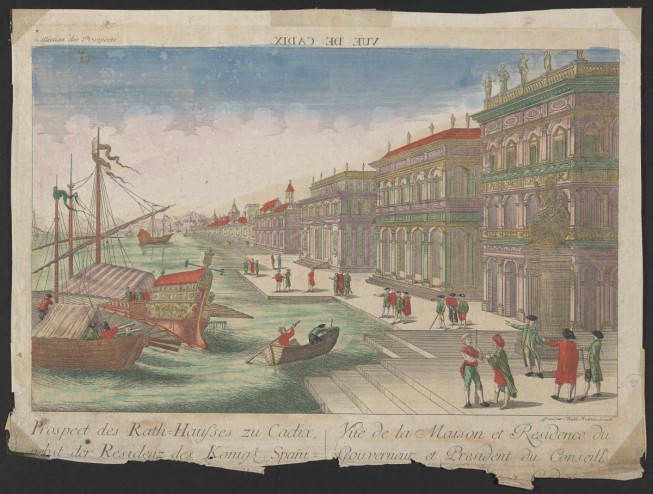 Collection des Prospects
VUE DE CADIX
Prospect des Rath-Haußes zu Cadix,
nebst der Residenz des Königl. Spani=
Vuë de la Maison et Residence du
Gouverneur et President du Conseil